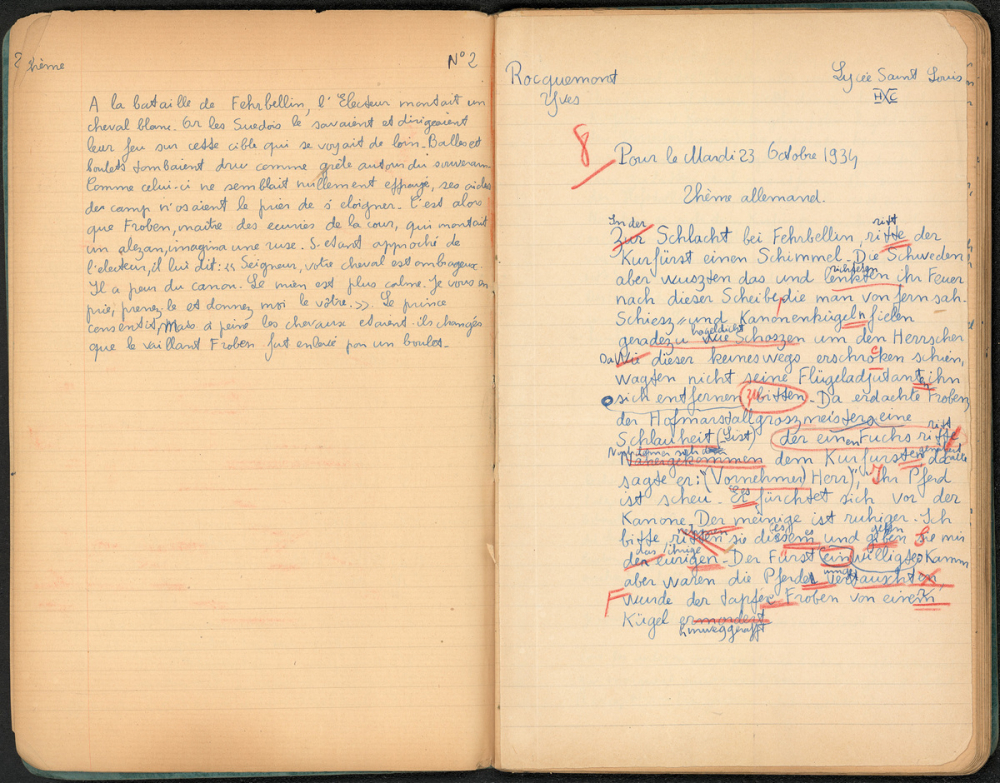 Thème N° 2
A la bataille de Fehrbellin, l'Electeur montait un
cheval blanc. Or les Suedois le savaient et dirigeaient
leur feu sur cette cible qui se voyait de loin. Balles et
boulets tombaient dru comme grêle autour du souverain
Comme celui-ci ne semblait nullement effrayé, ses aides
de camp n'osaient le prier de s'eloigner. C'est alors
que Froben, maitre des ecuries de la cour, qui montait
un alezan, imagina une ruse. S'etant approché de
l'electeur, il lui dit: << Seigneur, votre cheval est ombrageux.
Il a peur du canon. Le mien est plus calme. Je vous en
prie, prenez-le et donnez moi le vôtre. >> Le prince
consentit, Mais à peine les chevaux etaient-ils changés
que le vaillant Froben fut enlevé par un boulet.
Rocquemont
Yves
Lycée Saint Louis
HXC
8
Pour le Mardi 23 Octobre 1934
Thème allemand.
In der ritt
Zur Schlacht bei Fehrbellin, ritte der
Kurfürst einen Schimmel. Die Schweden
aber wuszten das und lenkten ihr Feuer
nach dieser Scheibe, die man von fern sah.
Schiesz= und Kanonenkugeln fielen
hageldicht
geradezu wie Schoszen um den Herrscher
Da Wie dieser keineswegs erschroken schien,
wagten nicht seine Flügeladjutanten ihn
sich entfernen zu bitten. Da erdachte Froben,
der Hofmarstallgroszmeister, eine
ritt
Schlauheit (List) der einen Fuchs ritte
Nähergekommen dem Kurfürsten
sagte er: "(Vornehmer) Herr", Ihr Pferd
ist scheu. Es fürchtet sich vor der
Kanone. Der meinige ist ruhiger. Ich
nehmen es geben
bitte ritten sie diesem und geben Sie mir
das ihrige
der eurigen. Der Fürst einwilligte. Kaum
aber waren die Pferde vertauscht
wurde der tapfere Froben von einem
Kugel ermordert
hinweggerafft